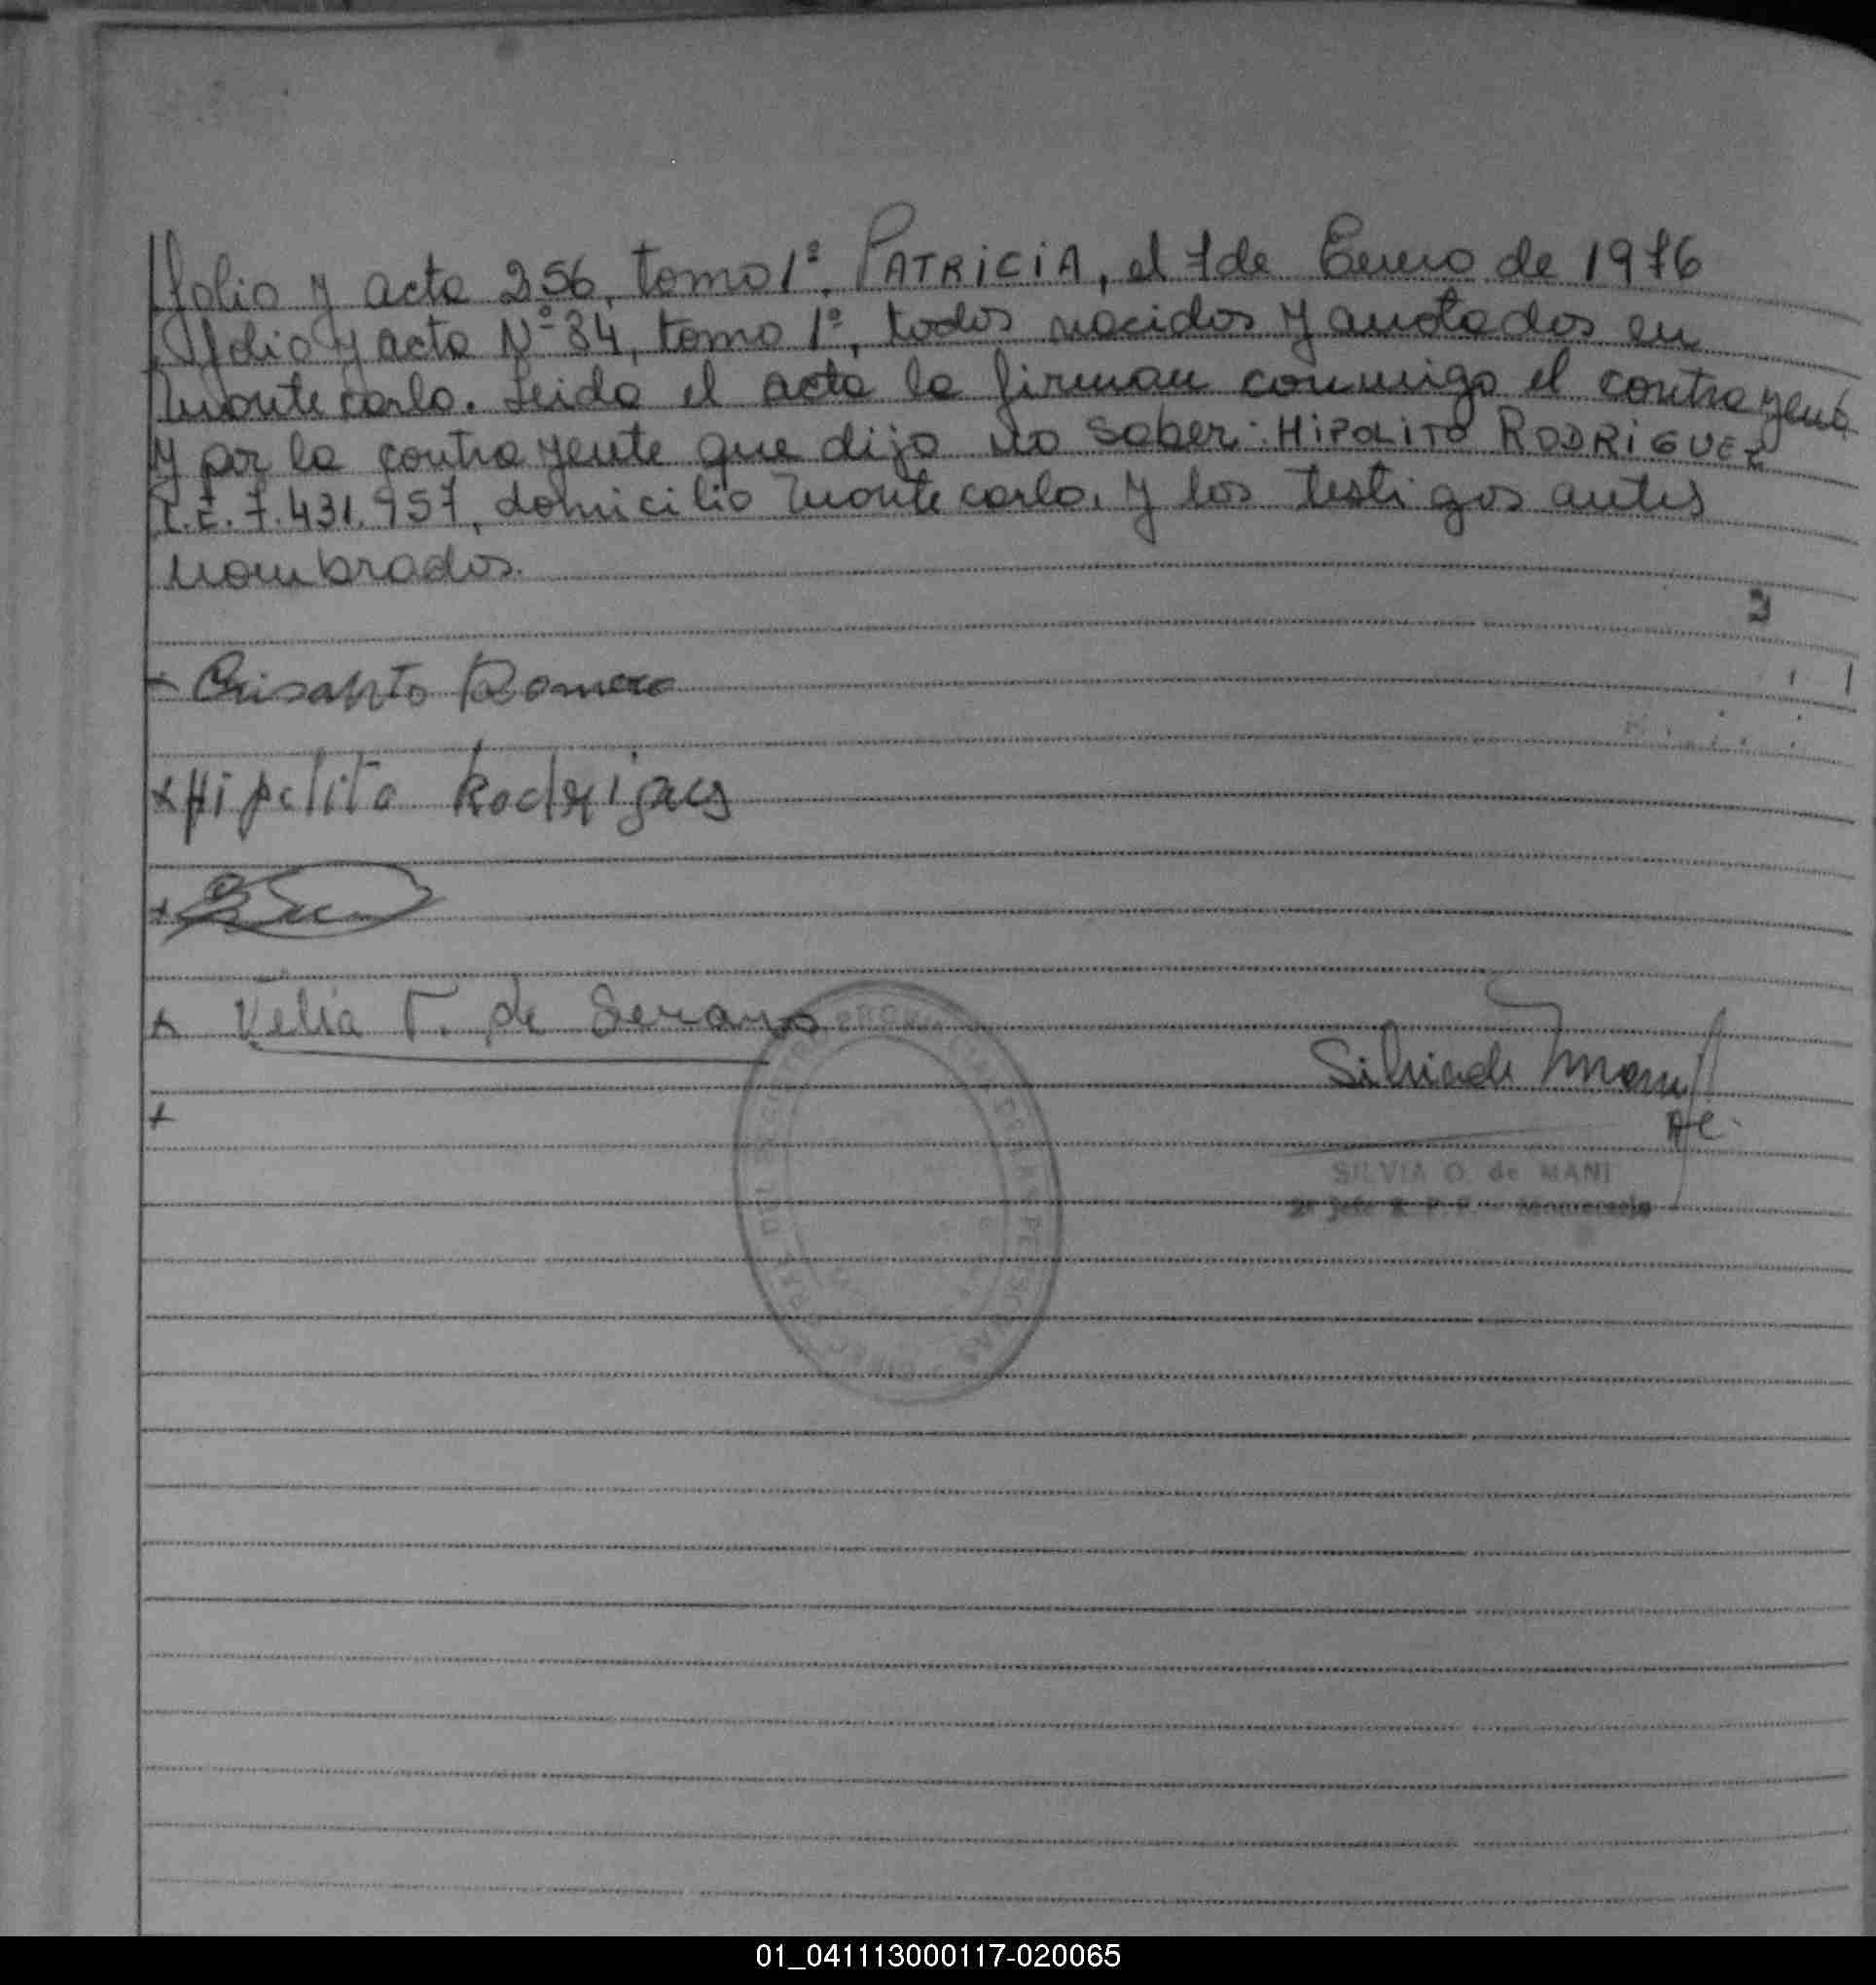 folio y acta 256, tomo 1º. PATRICIA, el 7 de Enero de 1976
folio y acta Nº 34, tomo 1º, todos nacidos y anotados en
Montecarlo. Leida el acta la firman conmigo el contrayente
y por la contrayente que dijo no saber: HIPOLITO RODRIGUEZ
L.E. 7.431.957, domicilio Montecarlo. y los testigos antes
nombrados.
Crisanto Romero
Hipolito Rodrigues
Velia T. de Serano
Silvia de Mani
SILVIA O. de MANI
2º Jefe R. P. P. - Montecarlo
01_041113000117-020065